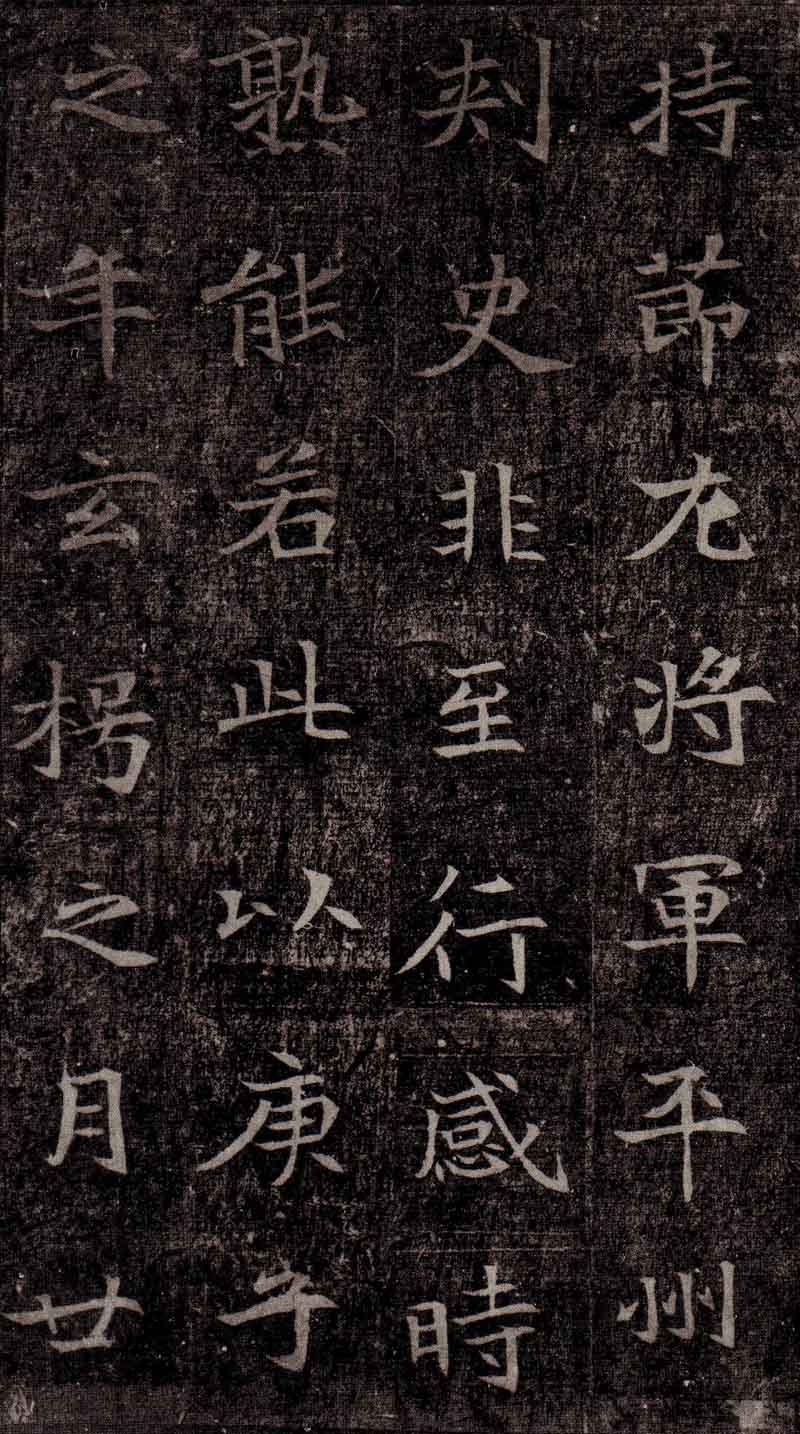 持節尢將軍平州
刾史非至行感時
熟能若此以庚子
之年玄枵之月廿